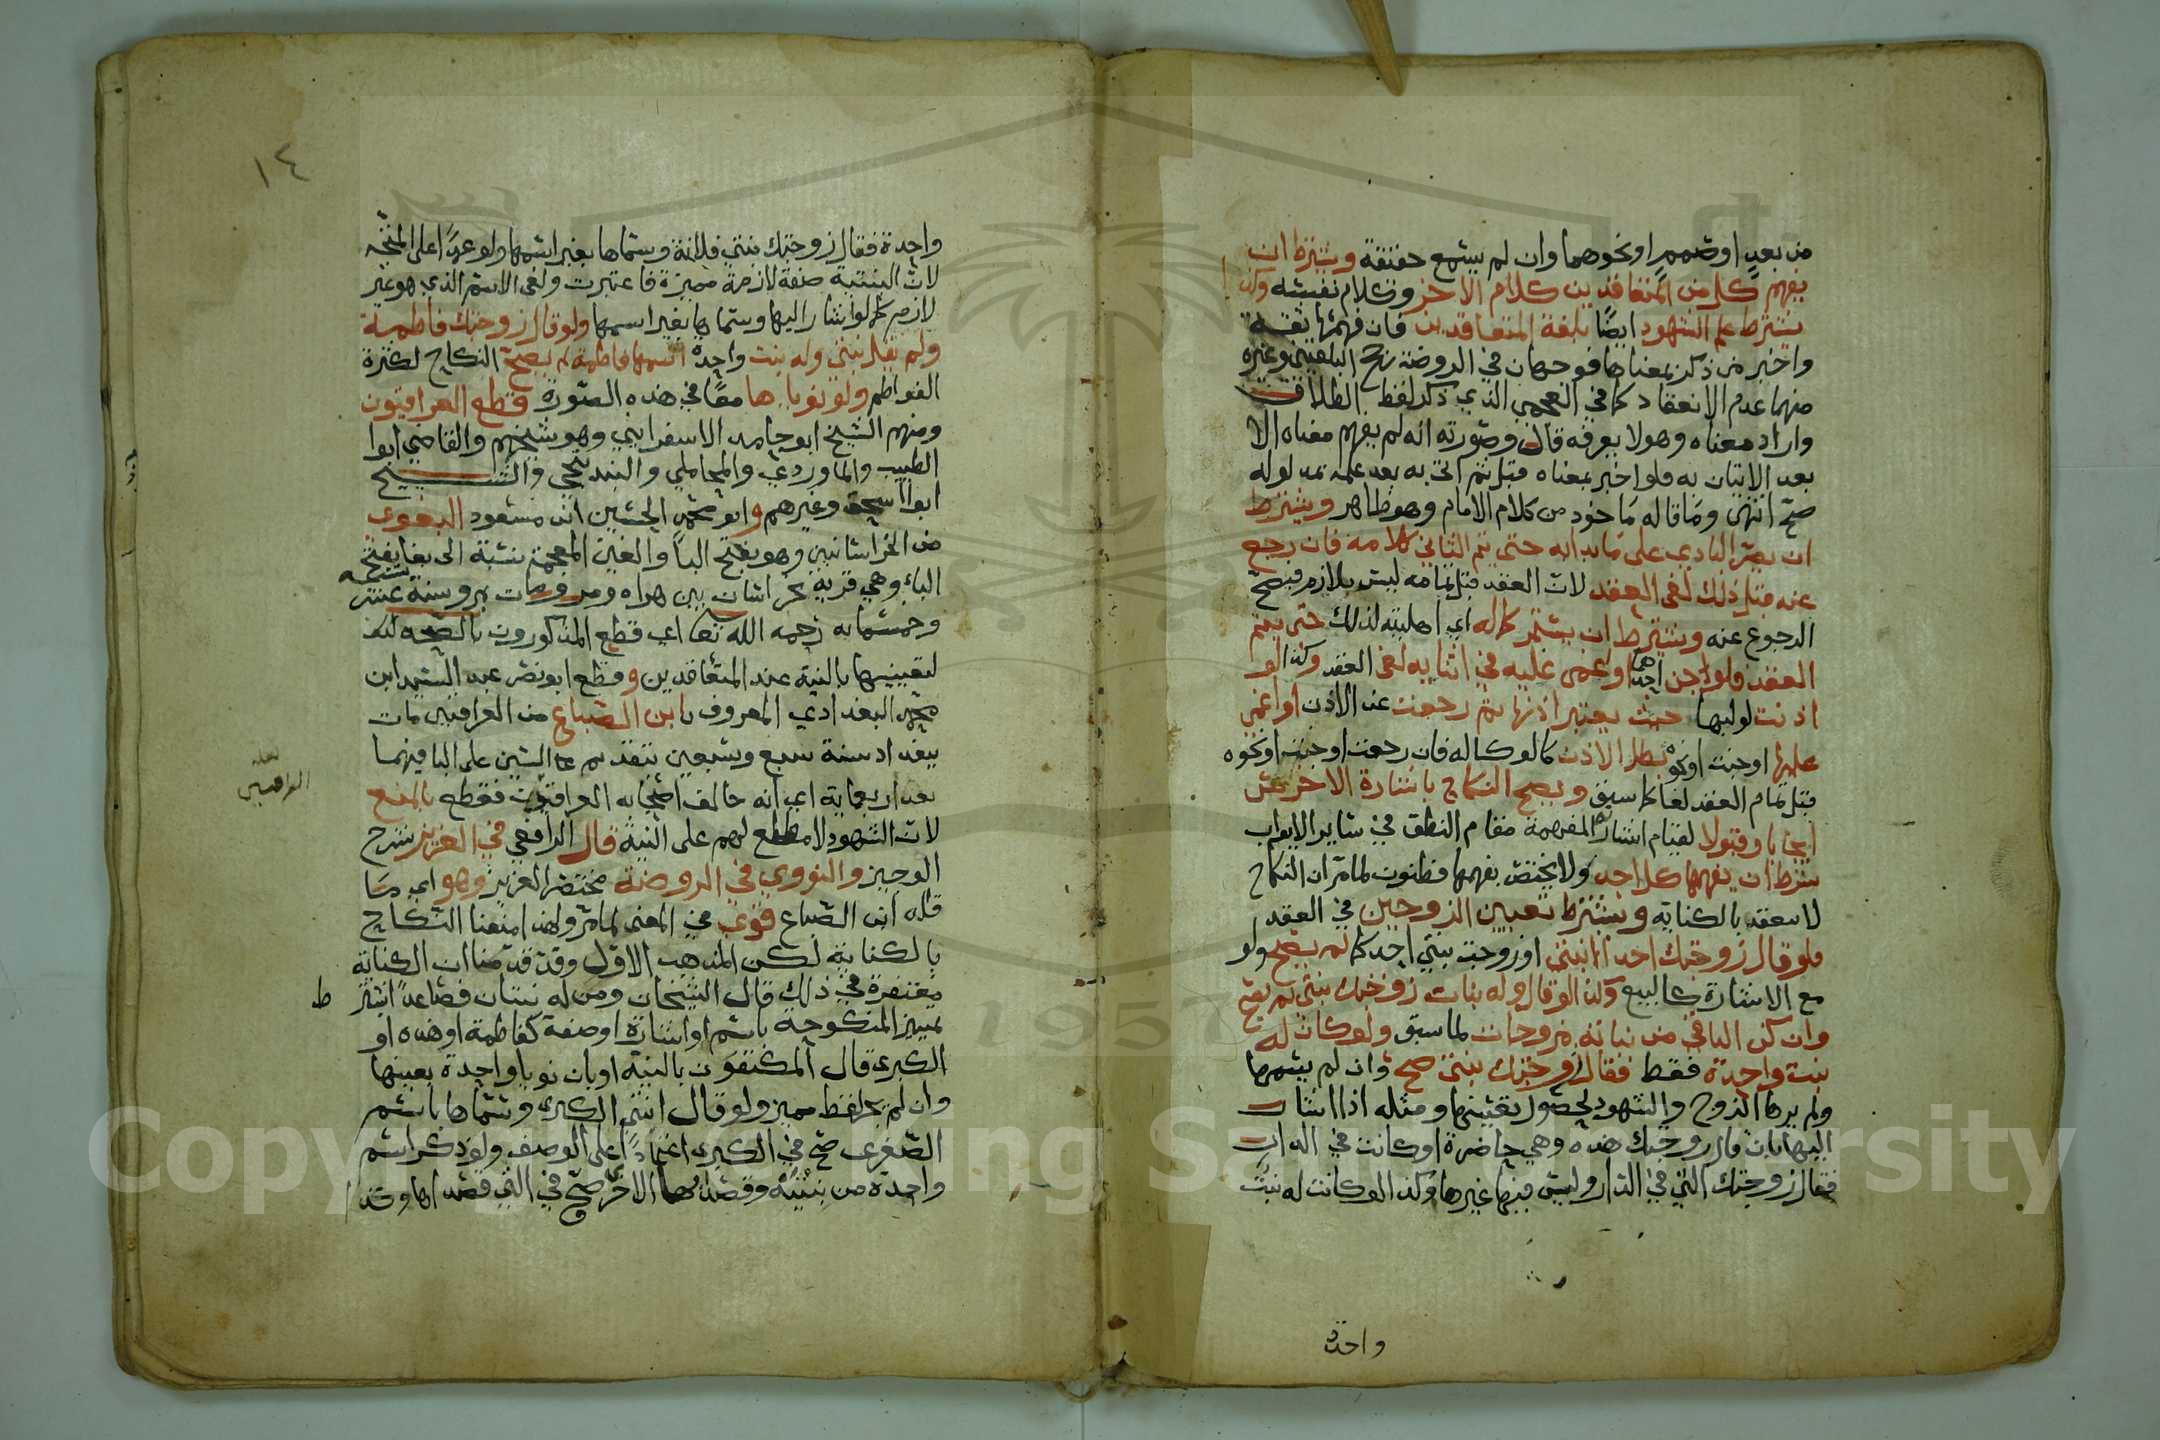 من بعد او صمم او نحوهما وان لم يسمع حقيقة ويشترط ان
يفهم كل من المتعاقدين كلام الاخر وكلام نفسه وان
يشترط علم الشهود ايضا بلغة المتعاقدين فان فهمها ثقة
واخبر من ذكر بمعناها فوجهان في الروضة رجح البلقيني وغيره
منهما عدم الانعقاد كما في العجمي الذي ذكر لفظ الطلاق
واراد معناه وهو لا يعرفه قال وصورته انه لم يفهم معناه الا
بعد الاتيان به فلو اخبر بمعناه قبل ثم اتى به بعد علمه بمدلوله
صح انتهى وما قاله ماخوذ من كلام الامام وهو ظاهر ويشترط
ان يصر البادي على ما بدا به حتى يتم الثاني كلامه فان رجع
عنه قبل ذلك لغى العقد لان العقد قبل تمامه ليس بلازم فيصح
الرجوع عنه ويشترط ان يستمر كماله اي اهليته لذلك حتى يتم
العقد فلو جن احدهما او اغمى عليه في اثنايه لغى العقد وكذا لو
اذنت لوليها حيث يعتبر اذنها ثم رجعت عن الاذن او اغمي
عليها او جنت او نحوه بطل الاذن كالوكالة فان رجعت او جنت او نحوه
قبل تمام العقد لغا كما سبق ويصح النكاح باشارة الاخرس
ايجابا وقبولا لقيام اشارته المفهمة مقام النطق في ساير الابواب
بشرط ان يفهمها كل احد ولا يختص بفهمها فطنون لما مر ان النكاح
لا ينعقد بالكناية ويشترط تعيين الزوجين في العقد
فلو قال زوجتك احدا ابنتي او زوجت بنتي احدكما لم يصح ولو
مع الاشارة كالبيع وكذا لو قال وله بنات زوجتك بنتي لم يصح
وان كن الباقي من بناته مزوجات لما سبق ولو كان له
بنت واحدة فقط فقال زوجتك بنتي صح وان لم يسمها
ولم يرها الزوج والشهود لحصول تعيينها ومثله اذا اشار
اليها بان قال زوجتك هذه وهي حاضرة او كانت في الدار
فقال زوجتك التي في الدار وليس فيها غيرها وكذا لو كانت له بنت
واحدة
١٤
واحدة فقال زوجتك بنتي فلانة وسماها بغير اسمها ولو عمدا على المتجه
لان البنتية صفة لازمة مميزة فاعتبرت ولغى الاسم الذي هو غير
لازم كما لو اشار اليها وسماها بغير اسمها ولو قال زوجتك فاطمة
ولم يقل بنتي وله بنت واحدة اسمها فاطمة لم يصح النكاح لكثرة
الفواطم ولو نوياها معا في هذه الصورة قطع العراقيون
ومنهم الشيخ ابو حامد الاسفرايني وهو شيخهم والقاضي ابوا
الطيب والماوردي والمحاملي والبندنيجي والشيخ
ابوا اسحق وغيرهم وابو محمد الحسين ابن مسعود البغوي
من الخراسانيين وهو بفتح الباء والغين المعجمة نسبة الى بغا بفتح
الباء وهي قرية بخراسان بين هراه ومرو ومات بمرو سنة ستة عشر
وخمسمايه رحمه الله تعا اي قطع المذكورون بالصحة
لتعيينها بالنية عند المتعاقدين وقطع ابو نصر عبد السيد ابن
محمد البغدادي المعروف بابن الصباغ من العراقيين مات
ببغداد سنة سبع وسبعين بتقديم السين على البا فيهما
بعد اربعماية اي انه خالف اصحابه العراقيون فقطع بالمنع
العراقيين
لان الشهود لا مطلع لهم على النية قال الرافعي في العزيز شرح
الوجيز والنووي في الروضة مختصر العزيز وهو اي ما
قاله ابن الصباغ قوي في المعنى لما مر ولهذا منعنا النكاح
بالكناية لكن المذهب الاول وقد قدمنا ان الكناية
مغتفرة في ذلك قال الشيخان ومن له بنتان فصاعدا اشترط
تمييز المنكوحة باسم او اشارة او صفة كفاطمة او هذه او
الكبرى قال المكتفون بالنية او بان نويا واحدة بعينها
وان لم يجر لفظ مميز ولو قال ابنتي الكبرى وسماها باسم
الصغرى صح في الكبرى اعتمادا على الوصف ولو ذكر اسم
واحدة من بنتيه وقصدا هما الاخرى صح في التي قصداها وقد